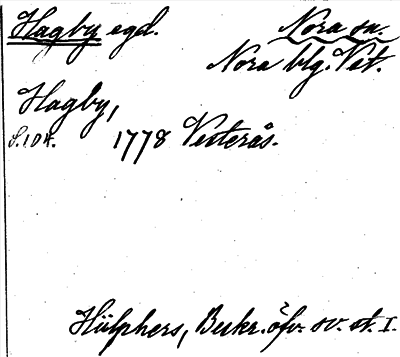 Hagby egd. Nora sn.
Nora blg. Vst.
Hagby,
S.104. 1778 Vesterås.
Hülphers, Beskr. öfv. sv. st. I.